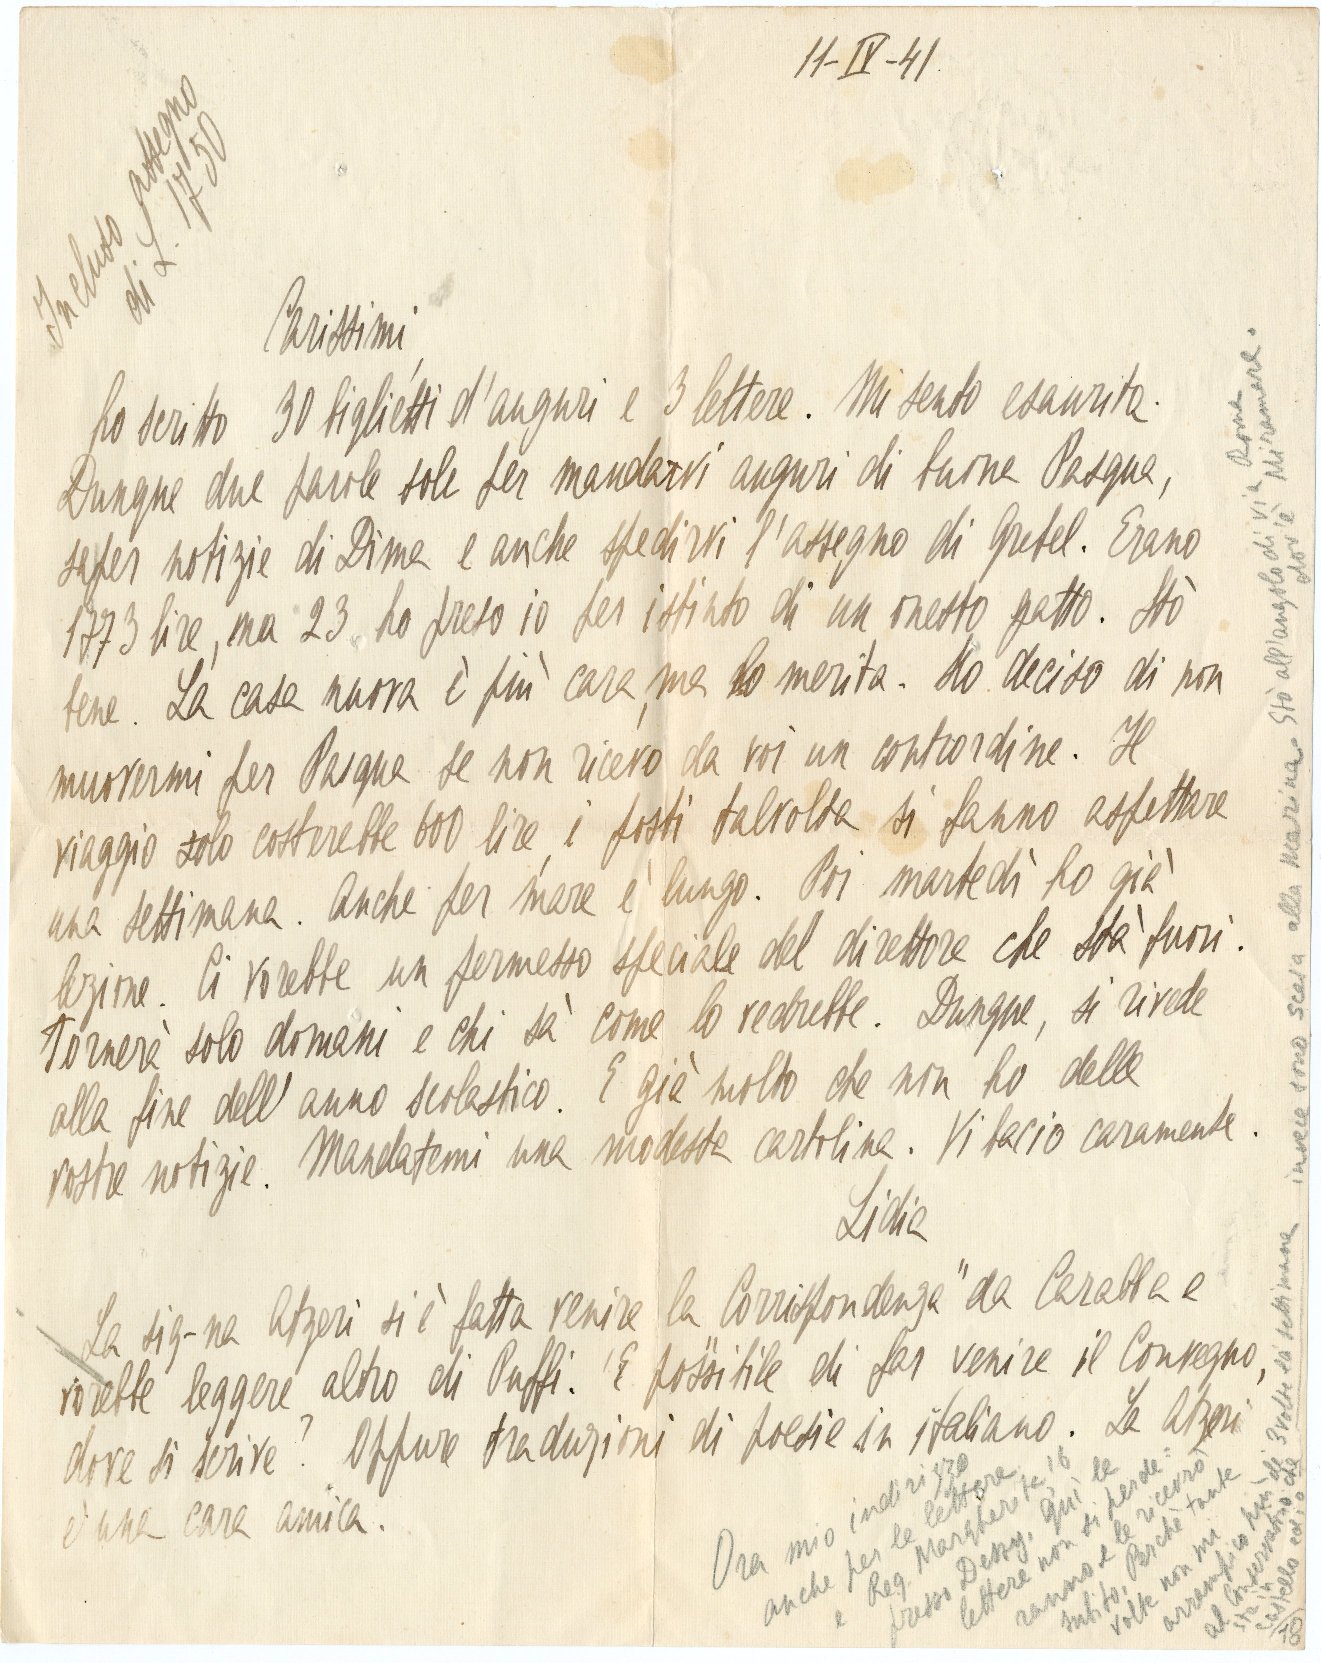 11-IV-41.
Incluso assegno
di L. 1750
Carissimi,
ho scritto 30 biglietti d'auguri e 3 lettere. Mi sento esaurita.
Dunque due parole sole per mandarvi auguri di buona Pasqua,
saper notizie di Dima e anche spedirvi l'assegno di Gretel. Erano
1773 lire, ma 23 ho preso io per istinto di un onesto gatto. Stò
bene. La casa nuova è più cara, ma lo merita. Ho deciso di non
muovermi per Pasqua se non ricevo da voi un contrordine. Il
viaggio solo costerebbe 600 lire, i posti talvolta si fanno aspettare
una settimana. Anche per mare è lungo. Poi martedì ho già
lezione. Ci vorebbe un permesso speciale del direttore che stà fuori.
Tornerà solo domani e chi sà come lo vedrebbe. Dunque, si rivede
alla fine dell'anno scolastico. E già molto che non ho delle
vostre notizie. Mandatemi una modesta cartolina. Vi bacio caramente.
Lidia
La sig-na Atzeri si è fatta venire la "Corrispondenza" da Carabba e
vorebbe leggere altro di Puffi. E possibile di far venire il Convegno,
dove si scrive? Oppure traduzioni di poesie in italiano. La Atzeri
è una cara amica.
Ora mio indirizzo
anche per le lettere
è Reg. Margherita 16
presso Dessy. Qui le
lettere non si perde=
ranno e le riceverò
subito. Perchè tante
volte non mi
arrampico più di 3 volte la settimana
al Conservatorio che
sta in
Castello ed io
invece sono scesa alla Marina. Stò all'angolo di via Roma
dov'è Miramare.
78